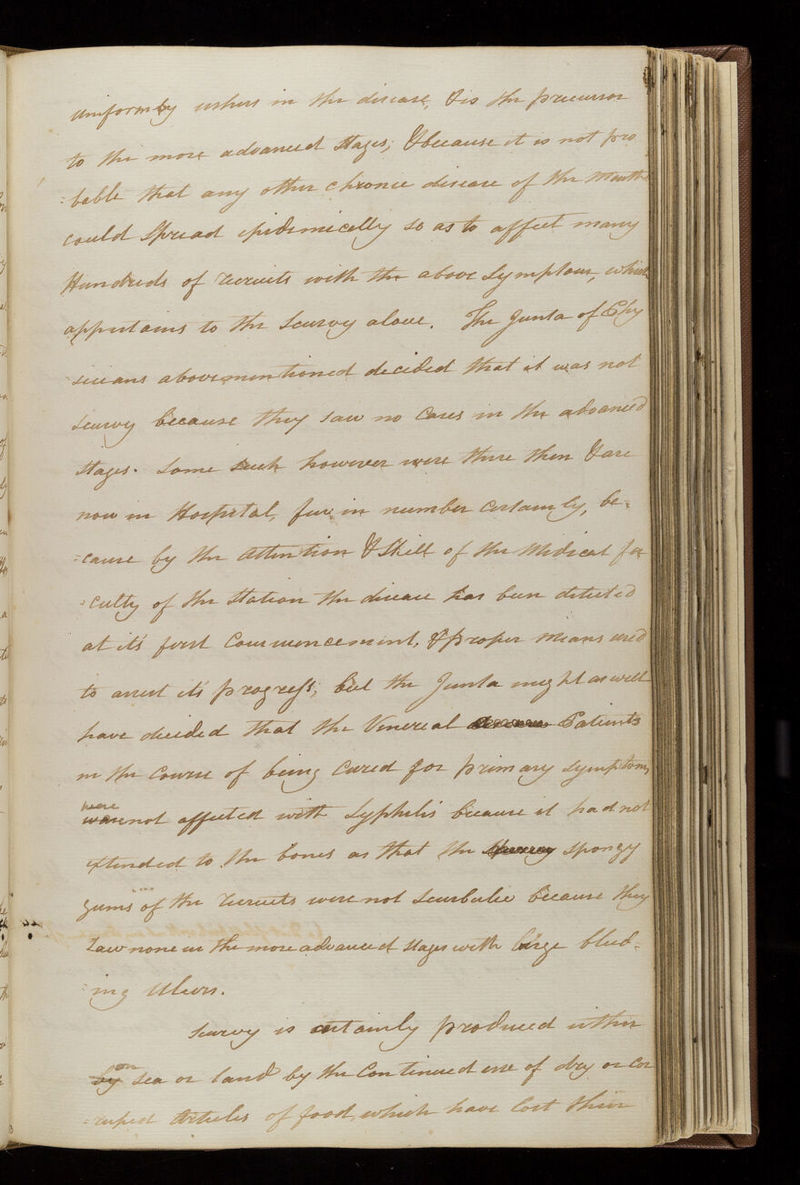 uniformly ushers in the disease, & is the precursor
to the more advanced stages; & because it is not pro
:bable that any other chronic disease of the Mouth
could spread epidemically so as to affect many
Hundreds of recruits with the above symptoms, which
appertains to the Scurvy alone. The Junta of Phy
sicians abovementioned decided that it was not
scurvy because they saw no Cases in the advanced
stages. Some such however were there then & are
now in Hospital, few in number certainly, be:
:cause by the attention & skill of the Medical fa
:culty of the Station the disease has been detected
at it's first Commencement, & proper means used
to arrest it's progress; but the Junta might as well
have decided that the Venereal Patients
in the Course of being Cured for primary symptoms
were not affected with Syphilis because it had not
extended to the bones as that the spongy
gums of the recruits were not Scorbutic because they
saw none in the more advanced stages with large bleed:
:ing Ulcers.
Scurvy is certainly produced either
on sea or land by the Continued use of dry or Cor
:rupted Articles of food, which have lost their